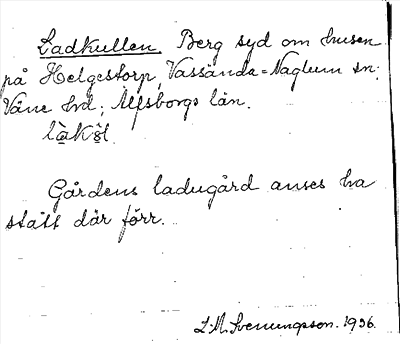 Ladkullen. Berg syd om husen
på Helgestorp, Vassända=Naglum sn;
Väne hrd; Älfsborgs län.
Gårdens ladugård anses ha
stått där förr.
L. M. Svenungsson. 1936.